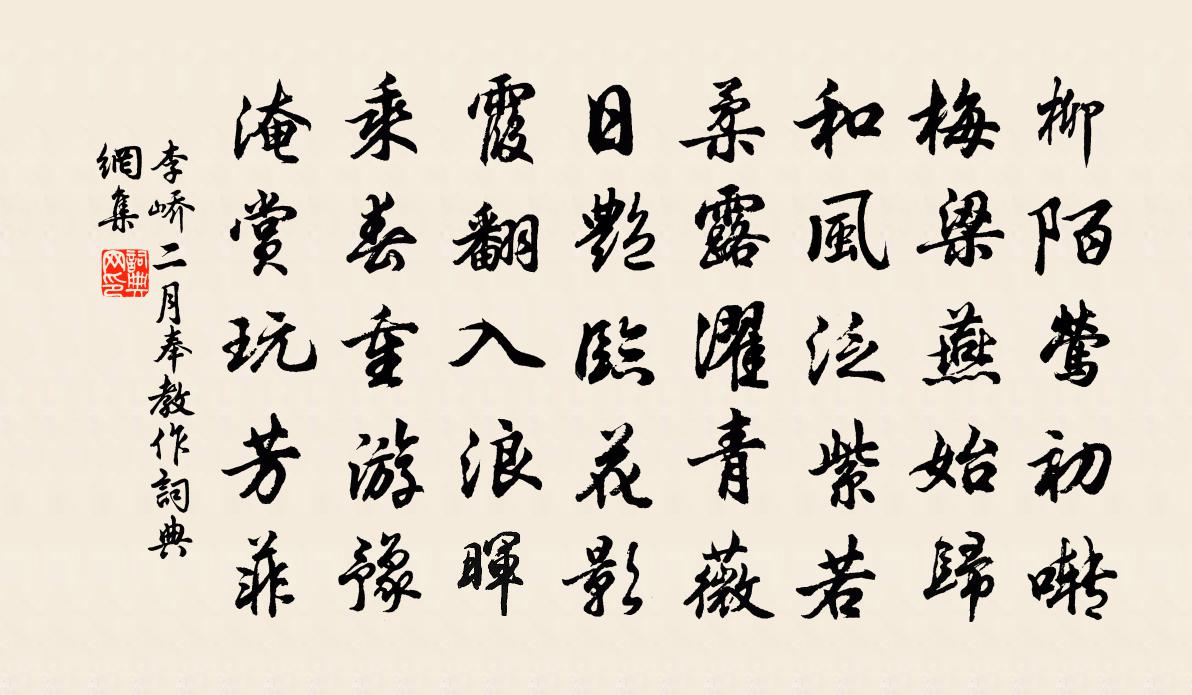 柳陌鶯初囀
梅梁燕始歸
和風泛紫若
柔露濯青薇
日艷臨花影
霞翻入浪暉
乘春重游豫
淹賞玩芳菲
李嶠二月奉教作詞典
網集
詞典网印